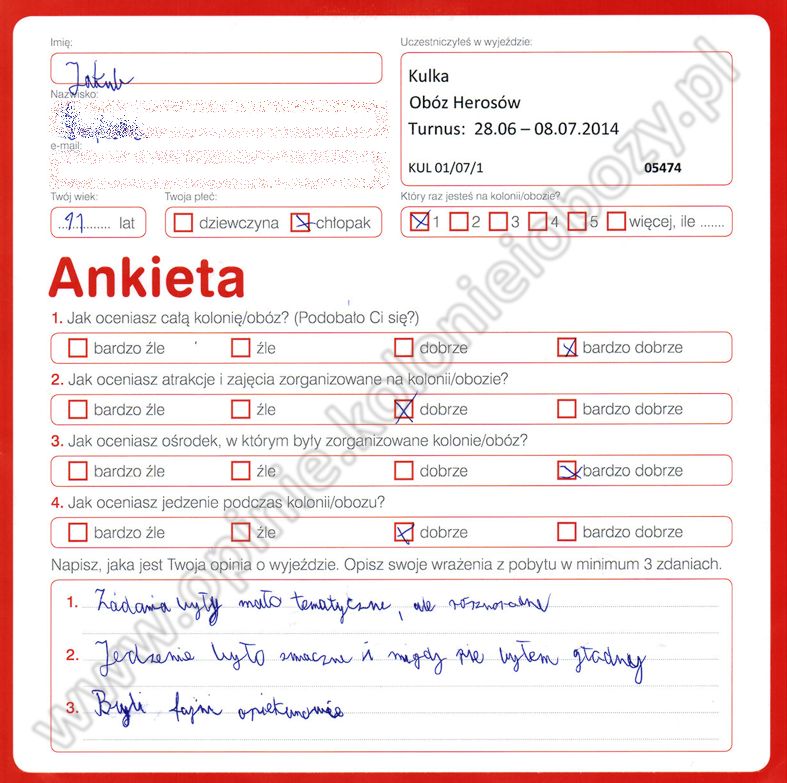 Imię:
Jakub
Uczestniczyłeś w wyjeździe:
Kulka
Obóz Herosów
Turnus: 28.06 – 08.07.2014
KUL 01/07/1 05474
Nazwisko:
e-mail:
Twój wiek:
..11........ lat
Twoja płeć:
dziewczyna chłopak
Który raz jesteś na kolonii/obozie?
1 2 3 4 5 więcej, ile .......
Ankieta
1. Jak oceniasz całą kolonię/obóz? (Podobało Ci się?)
bardzo źle źle dobrze bardzo dobrze
2. Jak oceniasz atrakcje i zajęcia zorganizowane na kolonii/obozie?
bardzo źle źle dobrze bardzo dobrze
3. Jak oceniasz ośrodek, w którym były zorganizowane kolonie/obóz?
bardzo źle źle dobrze bardzo dobrze
4. Jak oceniasz jedzenie podczas kolonii/obozu?
bardzo źle źle dobrze bardzo dobrze
Napisz, jaka jest Twoja opinia o wyjeździe. Opisz swoje wrażenia z pobytu w minimum 3 zdaniach.
1. Zadania były mało tematyczne, ale
2. Jedzenie było smaczne i nigdy nie byłem głodny
3. Byli fajni opiekunowie
www.opinie.kolonieiobozy.pl